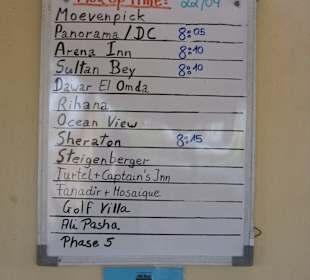 Pick Up Time: 22/04
Moevenpick
Panorama/DC 8:05
Arena Inn 8:10
Sultan Bey 8:10
Dawar El Omda
Rihana
Ocean View
Sheraton 8:15
Steigenberger
Turtel+Captain's Inn
Fanadir+Mosaique
Golf Villa
Ali Pasha
Phase 5